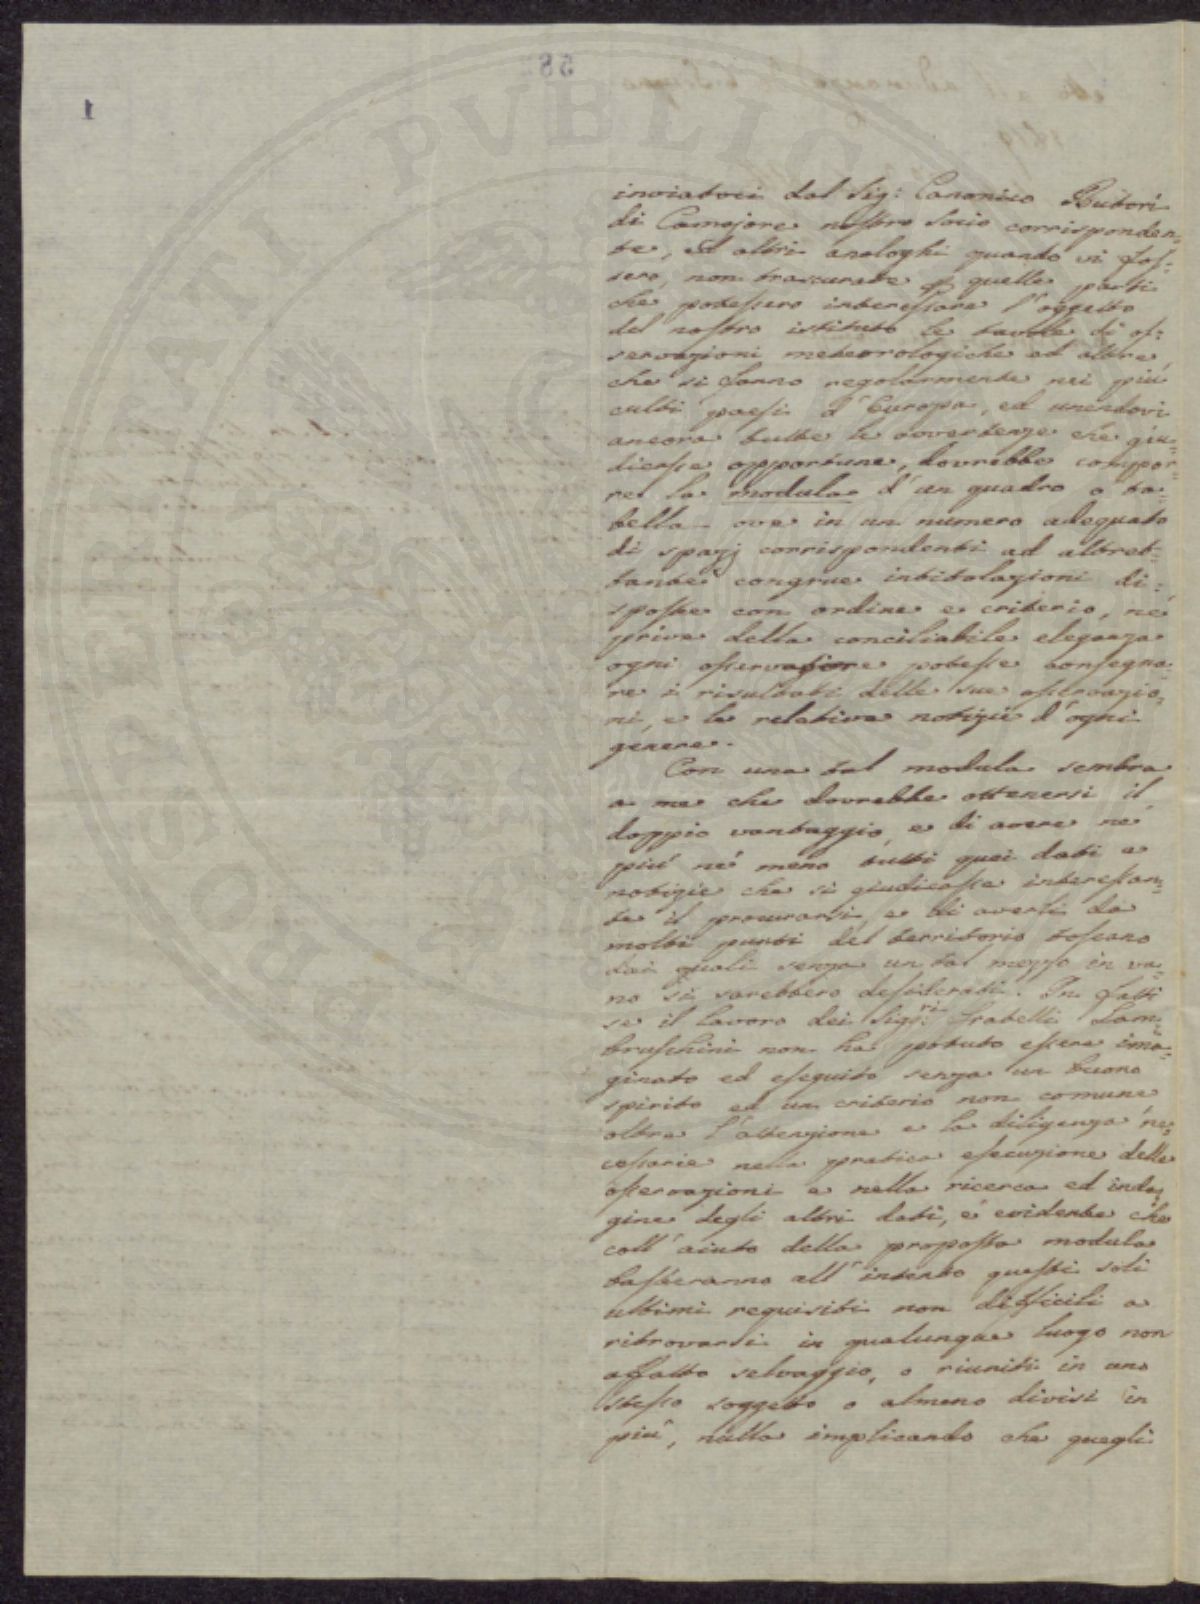 inviatoci dal Sig: Canonico Butori
di Camajore nostro socio corrisponden-
te, ed altri analoghi quando vi fos-
sero, non trascurate quelle parti
che potessero interessare l'oggetto
del nostro istituto le tavole di os-
servazioni meteorologiche ed altre
che si fanno regolarmente nei più
culti paesi d'Europa, ed unendovi
ancora tutte le avvertenze che giu-
dicasse opportune, dovrebbe compor-
re la modula d'un quadro o ta-
bella ove in un numero adeguato
di spazj corrispondenti ad altret-
tante congrue intitolazioni di-
sposte con ordine e criterio, né
prive della conciliabile eleganza
ogni osservatore potesse consegna-
re i risultati delle sue osservazio-
ni, e le relative notizie d'ogni
genere.
Con una tal modula sembra
a me che dovrebbe ottenersi il
doppio vantaggio, e di avere né
più né meno tutti quei dati e
notizie che si giudicasse interessan-
te il procurarsi, e di averli da
molti punti del territorio toscano
dai quali senza un tal mezzo in va-
no si sarebbero desiderati. In fatti
se il lavoro dei Sig:ri Fratelli Lam-
bruschini non ha potuto essere ima-
ginato ed eseguito senza un buono
spirito ed un criterio non comune
oltre l'attenzione e la diligenza ne-
cessarie nella pratica esecuzione delle
osservazioni e nella ricerca ed inda-
gine degli altri dati, é evidente che
coll'aiuto della proposta modula
basteranno all'intento questi soli
ultimi requisiti non difficili a
ritrovarsi in qualunque luogo non
affatto selvaggio, o riuniti in uno
stesso soggetto o almeno divisi in
più, nulla implicando che quegli